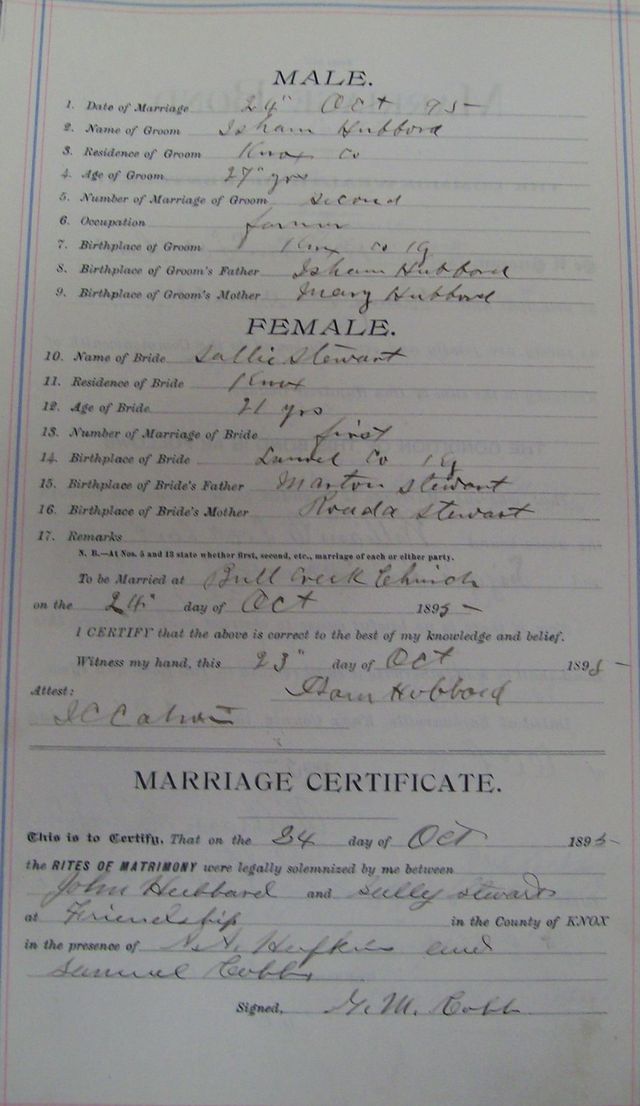 MALE.
1. Date of Marriage 24" Oct 95-
2. Name of Groom Isham Hubbord
3. Residence of Groom Knox Co
4. Age of Groom 27" yrs
5. Number of Marriage of Groom second
6. Occupation farmer
7. Birthplace of Groom Knox Co Ky
8. Birthplace of Groom's Father Isham Hubbord
9. Birthplace of Groom's Mother Mary Hubbord
FEMALE.
10. Name of Bride Sallie Stewart
11. Residence of Bride Knox
12. Age of Bride 21 yrs
13. Number of Marriage of Bride first
14. Birthplace of Bride Laurel Co Ky
15. Birthplace of Bride's Father Marton Stewart
16. Birthplace of Bride's Mother Roada Stewart
17. Remarks
N. B.—At Nos. 5 and 13 state whether first, second, etc., marriage of each or either party.
To be Married at Bull Creek Church
on the 24" day of Oct 1895-
I CERTIFY that the above is correct to the best of my knowledge and belief.
Witness my hand, this 23" day of Oct 1895-
Attest: Isom Hobbord
MARRIAGE CERTIFICATE.
This is to Certify, That on the 24 day of Oct 1895-
the RITES OF MATRIMONY were legally solemnized by me between
John Hubbard and Sally Steward
at Friendship in the County of KNOX
in the presence of and
Samuel Cobb
Signed, G. M. Cobb